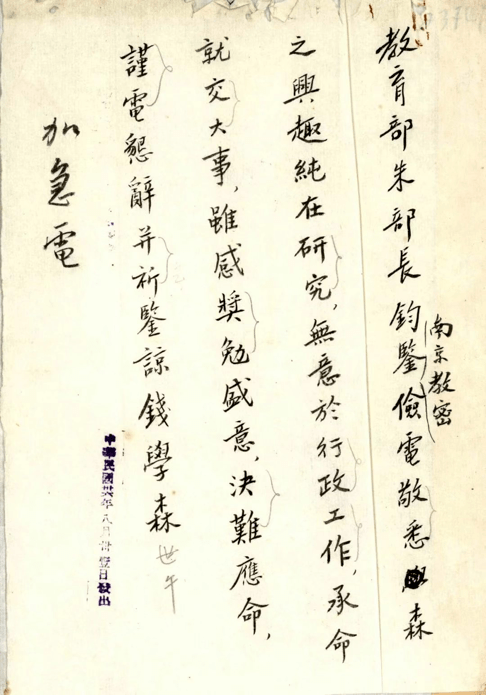 南京教密
教育部朱部長鈞鑒儉電敬悉森
之興趣純在研究，無意於行政工作，承命
就交大事，雖感獎勉盛意，決難應命，
謹電懇辭并祈鑒諒錢學森 世午
加急電
中華民國卅年八月卅壹日發出